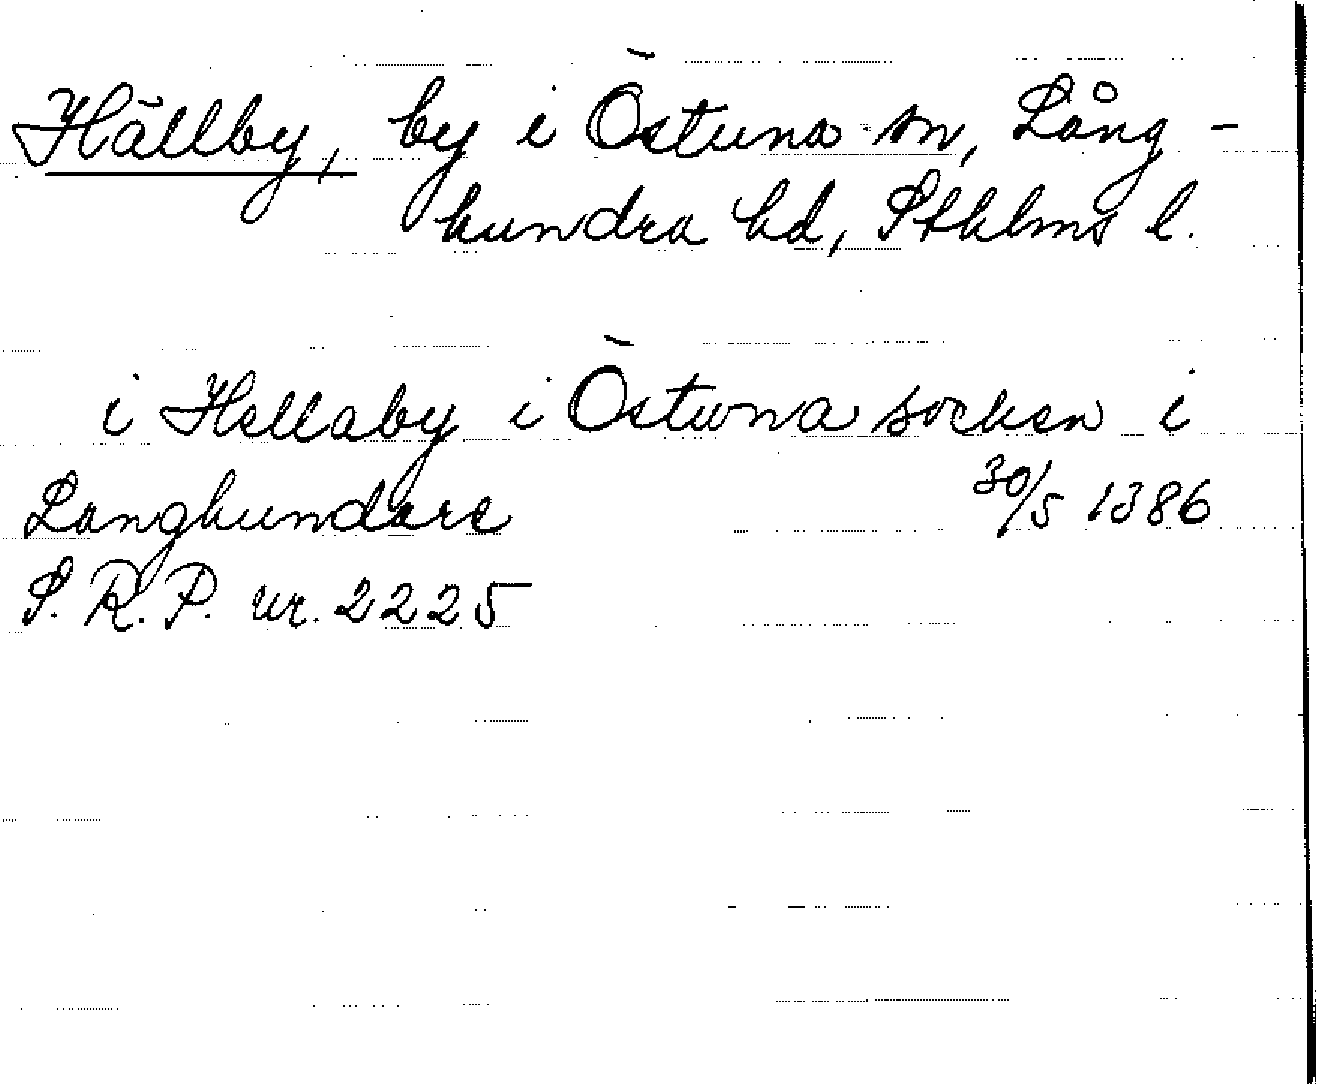 Hällby, by i Östuna sn, Lång-
hundra hd, Sthlms l.
i Hellaby i Östwna socken i
Langhundare 30/5 1386
S. R. P. nr. 2225